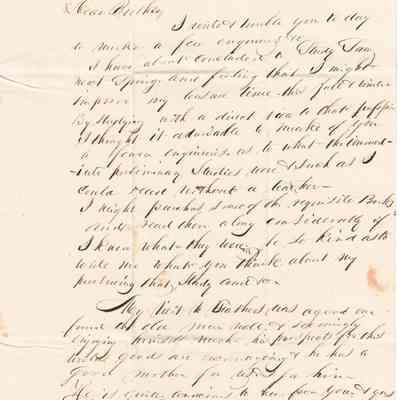 Dear Brother
I write & trouble you to day
to make a few enquiries
I have about concluded to Study Law
next Spring and feeling that I might
improve my leasure time this fall & winter
By studying with a direct view to that profession
I thought it advisable to make of you
a few enquiries as to what the immed-
iate preliminary Studies were & such as I
could read without a teacher
I might purchase some of the requisite Books
and read them along considerably if
I knew what they were, be so kind as to
write me what you think about my
pursuing that Study and so
My visit to Fathers was a good one
found the old man well & seemingly
enjoying himself his prospects for this
goods are and he has a
good mother for wife for him
He is quite anxious to hear from you & you